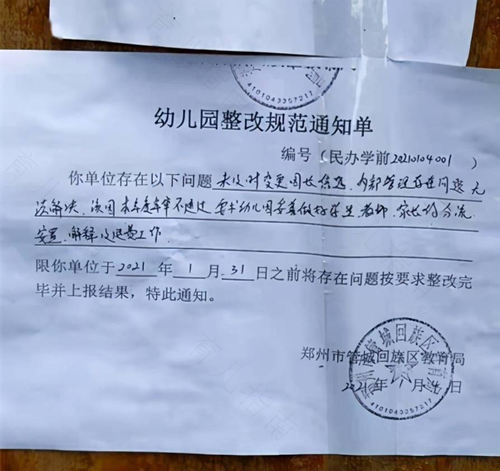 4101043357217
幼儿园整改规范通知单
编号（民办学前20210104001）
你单位存在以下问题未及时变更园长信息，内部管理存在问题无
法解决，该园本年度年审不通过，要求幼儿园妥善做好学生、教师、家长的分流
安置、解释及退费工作。
限你单位于2021年1月31日之前将存在问题按要求整改完
毕并上报结果，特此通知。
郑州市管城回族区教育局
2021年 月 日
4101043357217